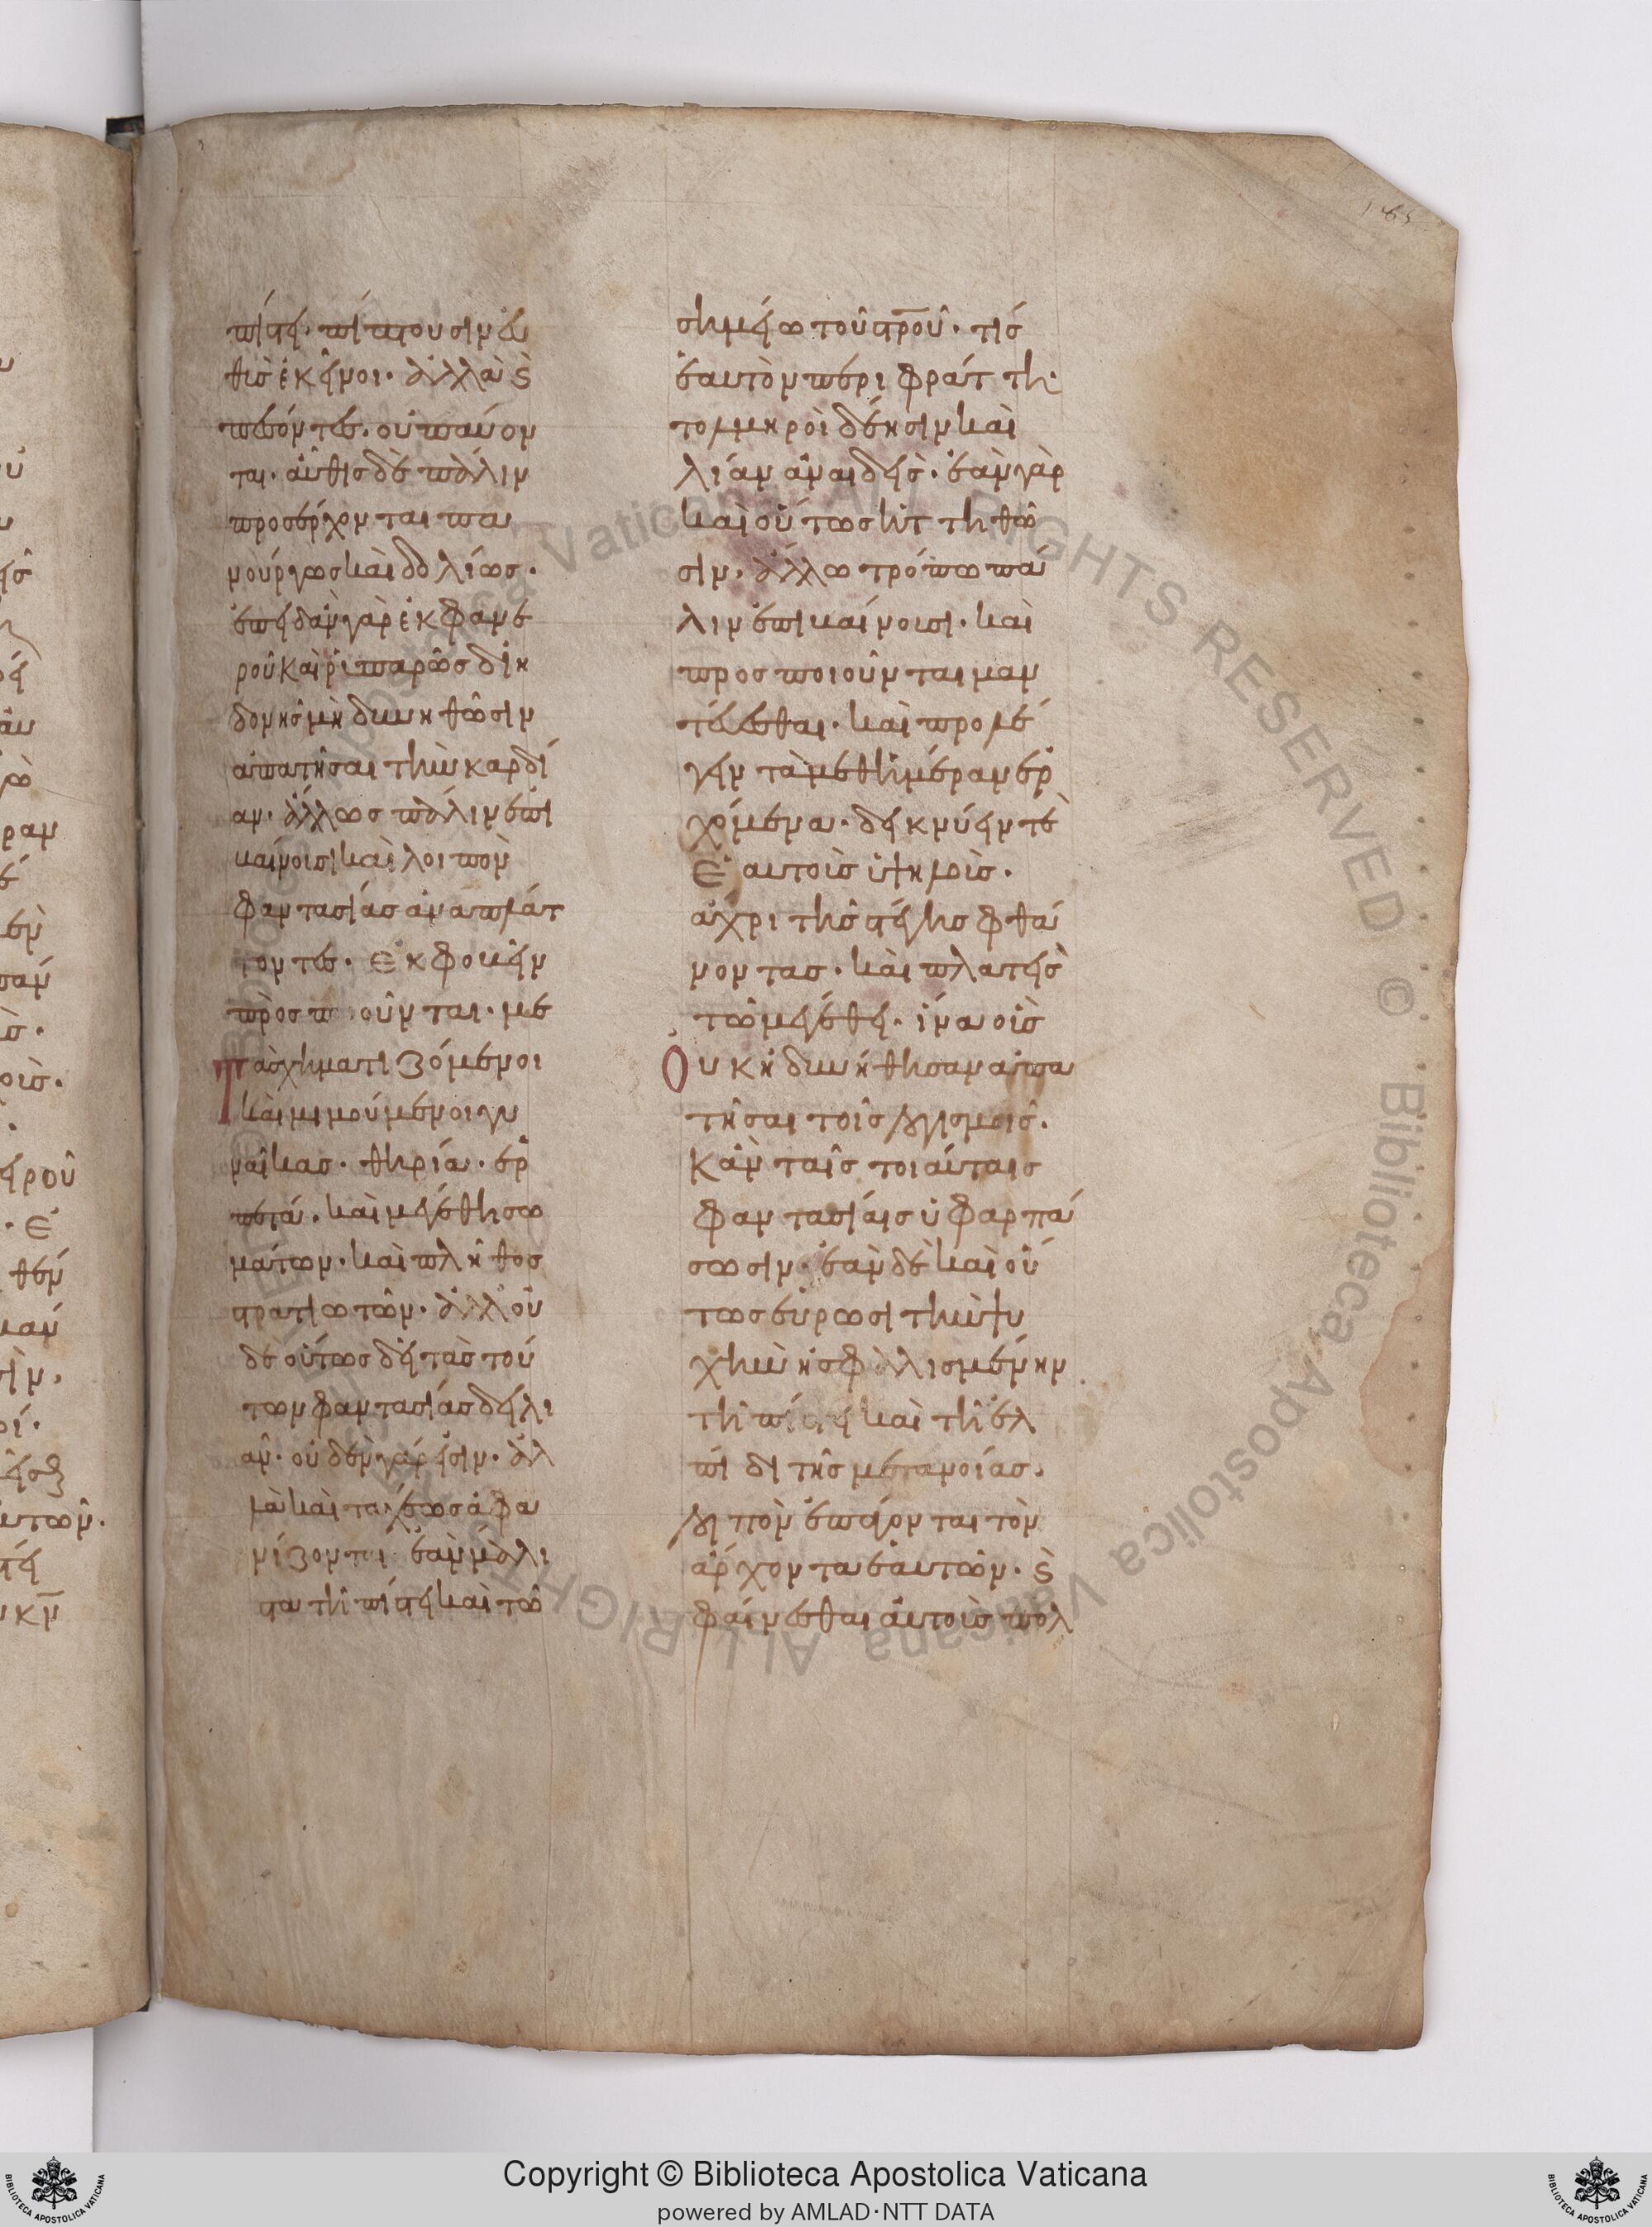 πίστει· πίπτουσιν ευ
θὺς ἐκεῖνοι· ἀλλὰ καὶ
πεσόντες· οὐ παύον
ται· αὖθις δὲ πάλιν
προσέρχονται πα
νούργως καὶ δολίως·
ἐπειδὰν γὰρ ἐκ φανε
ροῦ καὶ ῥυπαρῶς δι
δονῆς μὴ δυνηθῶσιν
ἀπατῆσαι τὴν καρδί
αν· ἄλλως πάλιν ἐπι
βαίνουσι καὶ λοιπὸν
φαντασίας ἀναπλάτ
τοντες· ἐκφοβεῖν
προσποιοῦνται· με
τασχηματιζόμενοι
καὶ μιμούμενοι γυ
ναῖκας· θηρία· ἑρ
πετά· καὶ μεγέθη σω
μάτων· καὶ πλῆθος
στρατιωτῶν· ἀλλ' οὐ
δὲ οὕτως δεῖ τὰς τού
των φαντασίας δειλι
ᾶν· οὐδὲν γάρ εἰσιν· ἀλ
λὰ καὶ ταχέως ἀφα
νίζονται ἐὰν μάλι
στα τῇ πίστει καὶ τῶ
σημείω τοῦ στροῦ· τίς
ἑαυτὸν περιφράττῃ·
τολμηροὶ δέ εἰσιν καὶ
λίαν ἀναιδεῖς· ἐὰν γὰρ
καὶ οὕτως ἡττηθῶ
σιν· ἄλλω τρόπω πά
λιν ἐπιβαίνουσι· καὶ
προσποιοῦνται μαν
τεύεσθαι· καὶ προλέ
γειν τὰ μεθημέραν ἐρ
χόμενα· δεικνύειν τε
ἑαυτοὺς ὑψηλοὺς·
ἄχρι τῆς στέγης φθά
νοντας· καὶ πλατεῖς
τῶ μεγέθει· ἵνα οὓς
Οὐκ ἠδυνήθησαν ἀπα
τῆσαι τοῖς λογισμοῖς·
κἂν ταῖς τοιαύταις
φαντασίαις ὑφαρπά
σωσιν· ἐὰν δὲ καὶ οὕ
τως εὕρωσι τὴν ψυ
χὴν ἠσφαλισμένην
τῇ πίστει καὶ τῇ ἐλ
πίδι τῆς μετανοίας·
λοιπὸν ἐπάγονται τὸν
ἄρχοντα ἑαυτῶν· καὶ
φαίνεσθαι αὐτοὺς πολ
Copyright © Biblioteca Apostolica Vaticana
powered by AMLAD·NTT DATA